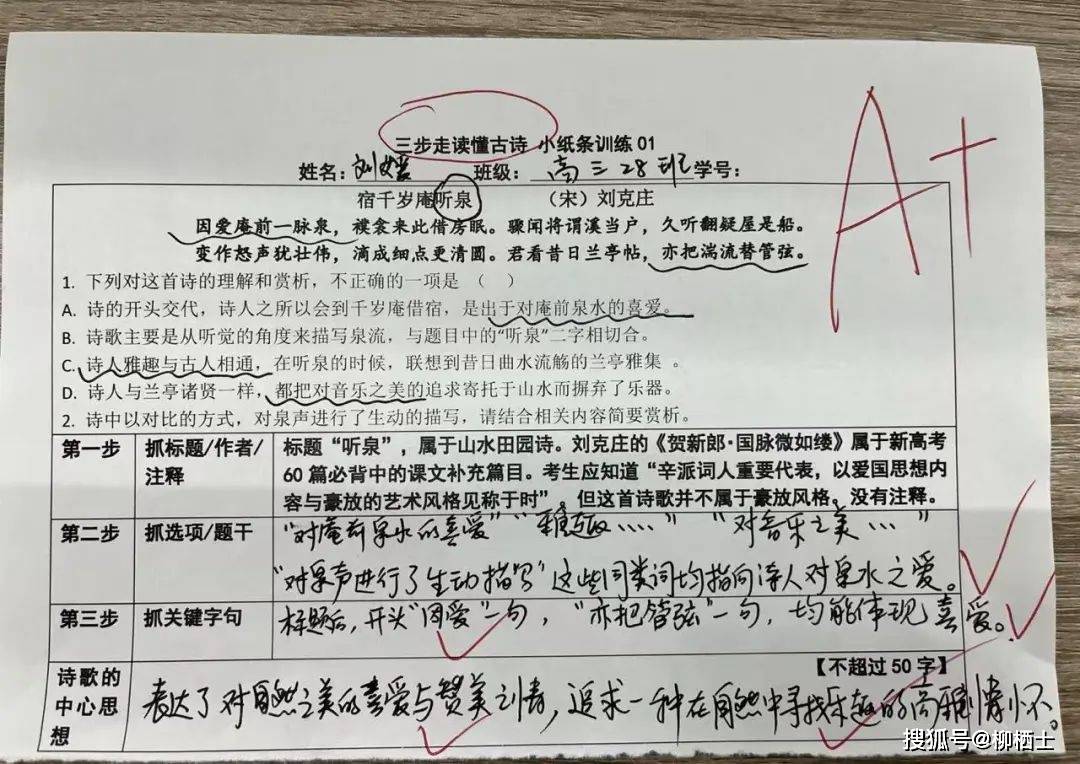 A+
三步走读懂古诗 小纸条训练 01
姓名：刘媛 班级：高三28班 学号：
宿千岁庵听泉 （宋）刘克庄
因爱庵前一脉泉，襆衾来此借房眠。骤闻将谓溪当户，久听翻疑屋是船。
变作怒声犹壮伟，滴成细点更清圆。君看昔日兰亭帖，亦把湍流替管弦。
1. 下列对这首诗的理解和赏析，不正确的一项是 （ ）
A. 诗的开头交代，诗人之所以会到千岁庵借宿，是出于对庵前泉水的喜爱。
B. 诗歌主要是从听觉的角度来描写泉流，与题目中的“听泉”二字相切合。
C. 诗人雅趣与古人相通，在听泉的时候，联想到昔日曲水流觞的兰亭雅集 。
D. 诗人与兰亭诸贤一样，都把对音乐之美的追求寄托于山水而摒弃了乐器。
2. 诗中以对比的方式，对泉声进行了生动的描写，请结合相关内容简要赏析。
第一步 抓标题/作者/注释 标题“听泉”，属于山水田园诗。刘克庄的《贺新郎·国脉微如缕》属于新高考
60 篇必背中的课文补充篇目。考生应知道“辛派词人重要代表，以爱国思想内
容与豪放的艺术风格见称于时”。但这首诗歌并不属于豪放风格。没有注释。
第二步 抓选项/题干 “对庵前泉水的喜爱”“雅趣……”“对音乐之美……”
“对泉声进行了生动描写”这些同类词均指向诗人对泉水之爱。
第三步 抓关键字句 标题后，开头“因爱”一句，“亦把管弦”一句，均能体现喜爱。
诗歌的中心思想 【不超过 50 字】
表达了对自然之美的喜爱与赞美之情，追求一种在自然中寻找乐趣的高雅情怀。
搜狐号@柳栖士